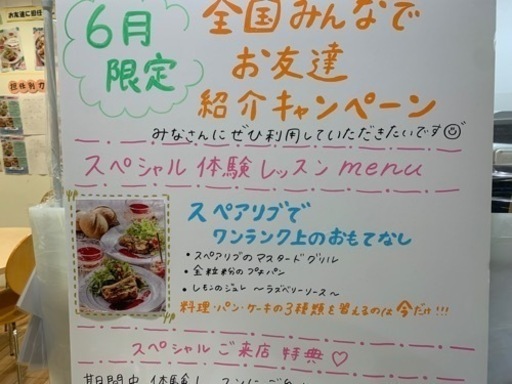 6月
限定
全国みんなで
お友達
紹介キャンペーン
みなさんにぜひ利用していただきたいです
スペシャル体験レッスンmenu
スペアリブで
ワンランク上のおもてなし
・スペアリブのマスタードグリル
・全粒粉のプチパン
・レモンのジュレ 〜ラズベリーソース〜
料理・パン・ケーキの3種類を習えるのは今だけ!!!
スペシャルご来店特典♡
期間中 体験レッスンにご